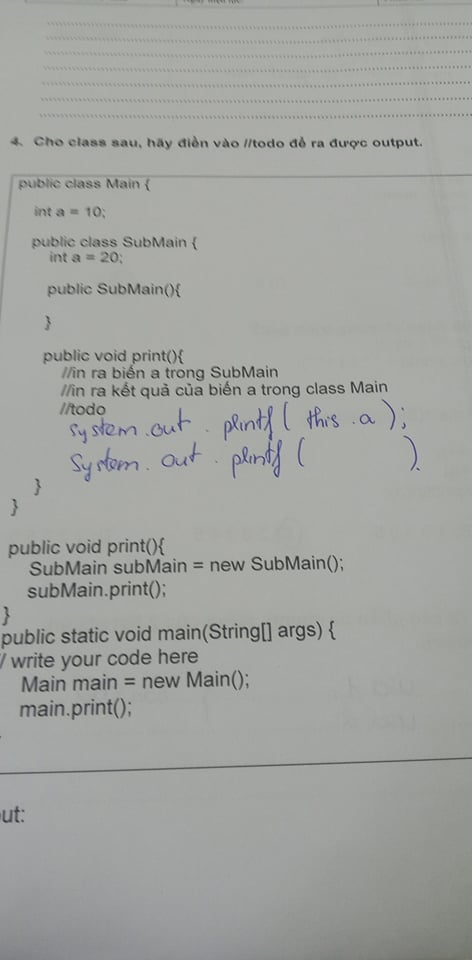 4. Cho class sau, hãy điền vào //todo để ra được output.
public class Main {
int a = 10;
public class SubMain {
int a = 20;
public SubMain(){
}
public void print(){
//in ra biến a trong SubMain
//in ra kết quả của biến a trong class Main
//todo
System.out.printf( this.a );
System.out.printf( ).
}
}
public void print(){
SubMain subMain = new SubMain();
subMain.print();
}
public static void main(String[] args) {
/ write your code here
Main main = new Main();
main.print();
ut: